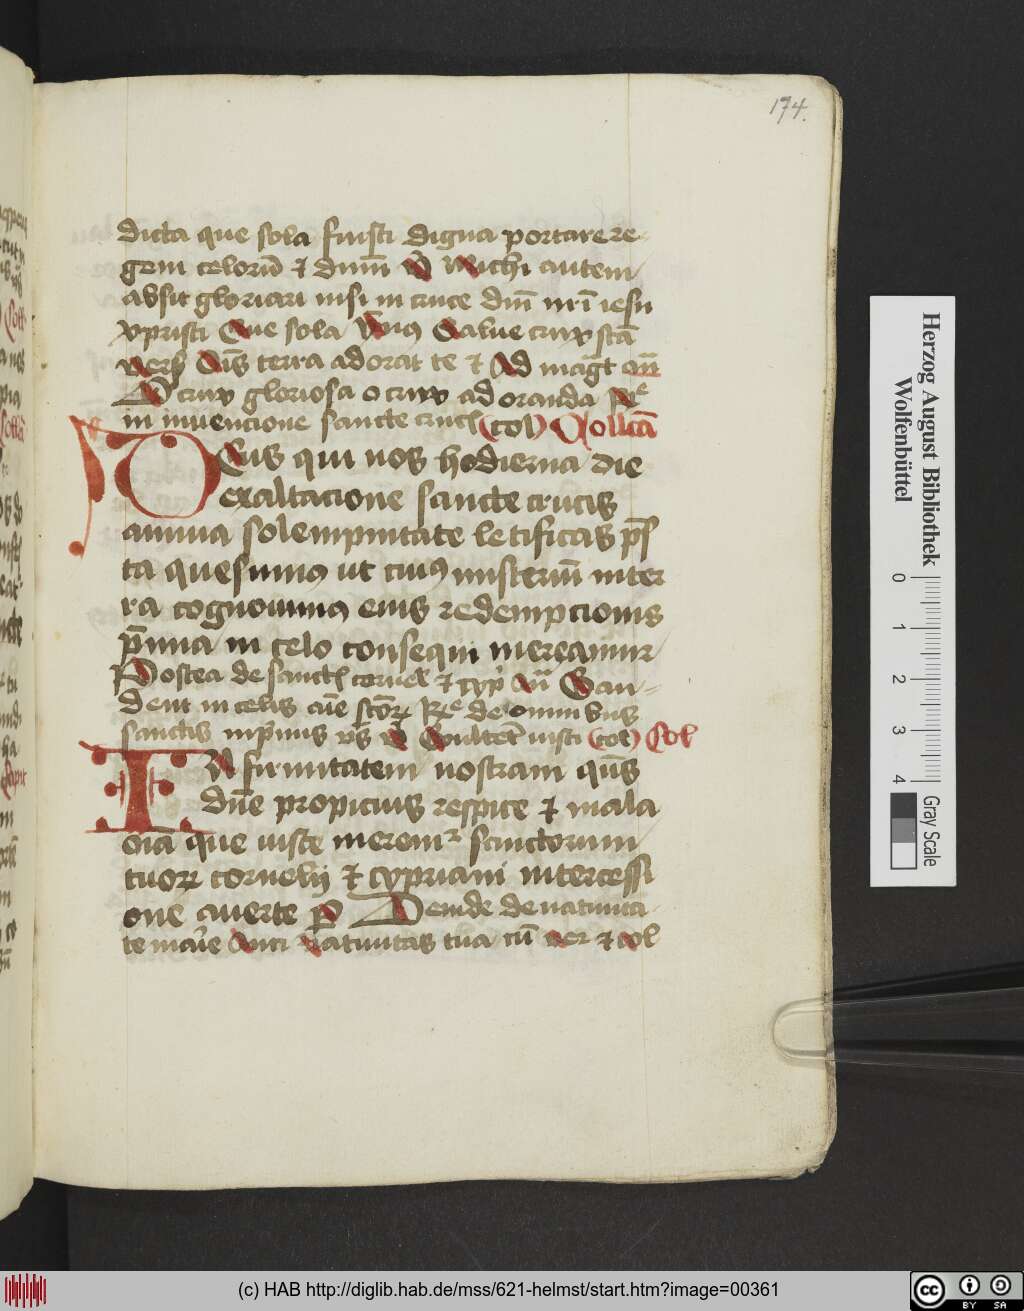 174.
dicta que sola fuisti digna portare re-
gem celorū ⁊ dnm̄ v̄ Michi autem
absit gloriari nisi in cruce dn̄i nr̄i iesu
xpristi Que sola Salue crux scā
vers̄ Om̄s terra adorat te ⁊ Ad mag̅t an̄
O crux gloriosa o crux ad oranda
in inuencione sancte cruc̄ (col) Collcā
Deus qui nos hodierna die
exaltacione sancte crucis
annua solempnitate letificas p̄s
ta quesumus ut cuiꝰ misteriū in ter
ra cognouimus eius redempcionis
p̄mia in celo consequi mereamur
Postea de sanct̄ cornel̄ ⁊ cyp̄ an̄ Gau-
dent in celis aīe sc̄oꝝ de omnibus
sanctis inp̄mis vs̄ v̄ Exultēt iusti (col) Col
In firmitatem nostram qus̄
dn̄e propicius respice ⁊ mala
om̄a que iuste meremr̄ sanctorum
tuoꝝ cornelij ⁊ cypriani intercessi
one auerte p̄ Deinde de natiuita-
te marīe Anti natiuitas tua cū ver ⁊ col
Herzog August Bibliothek
Wolfenbüttel
0 1 2 3 4
Gray Scale
(c) HAB http://diglib.hab.de/mss/621-helmst/start.htm?image=00361
cc BY SA